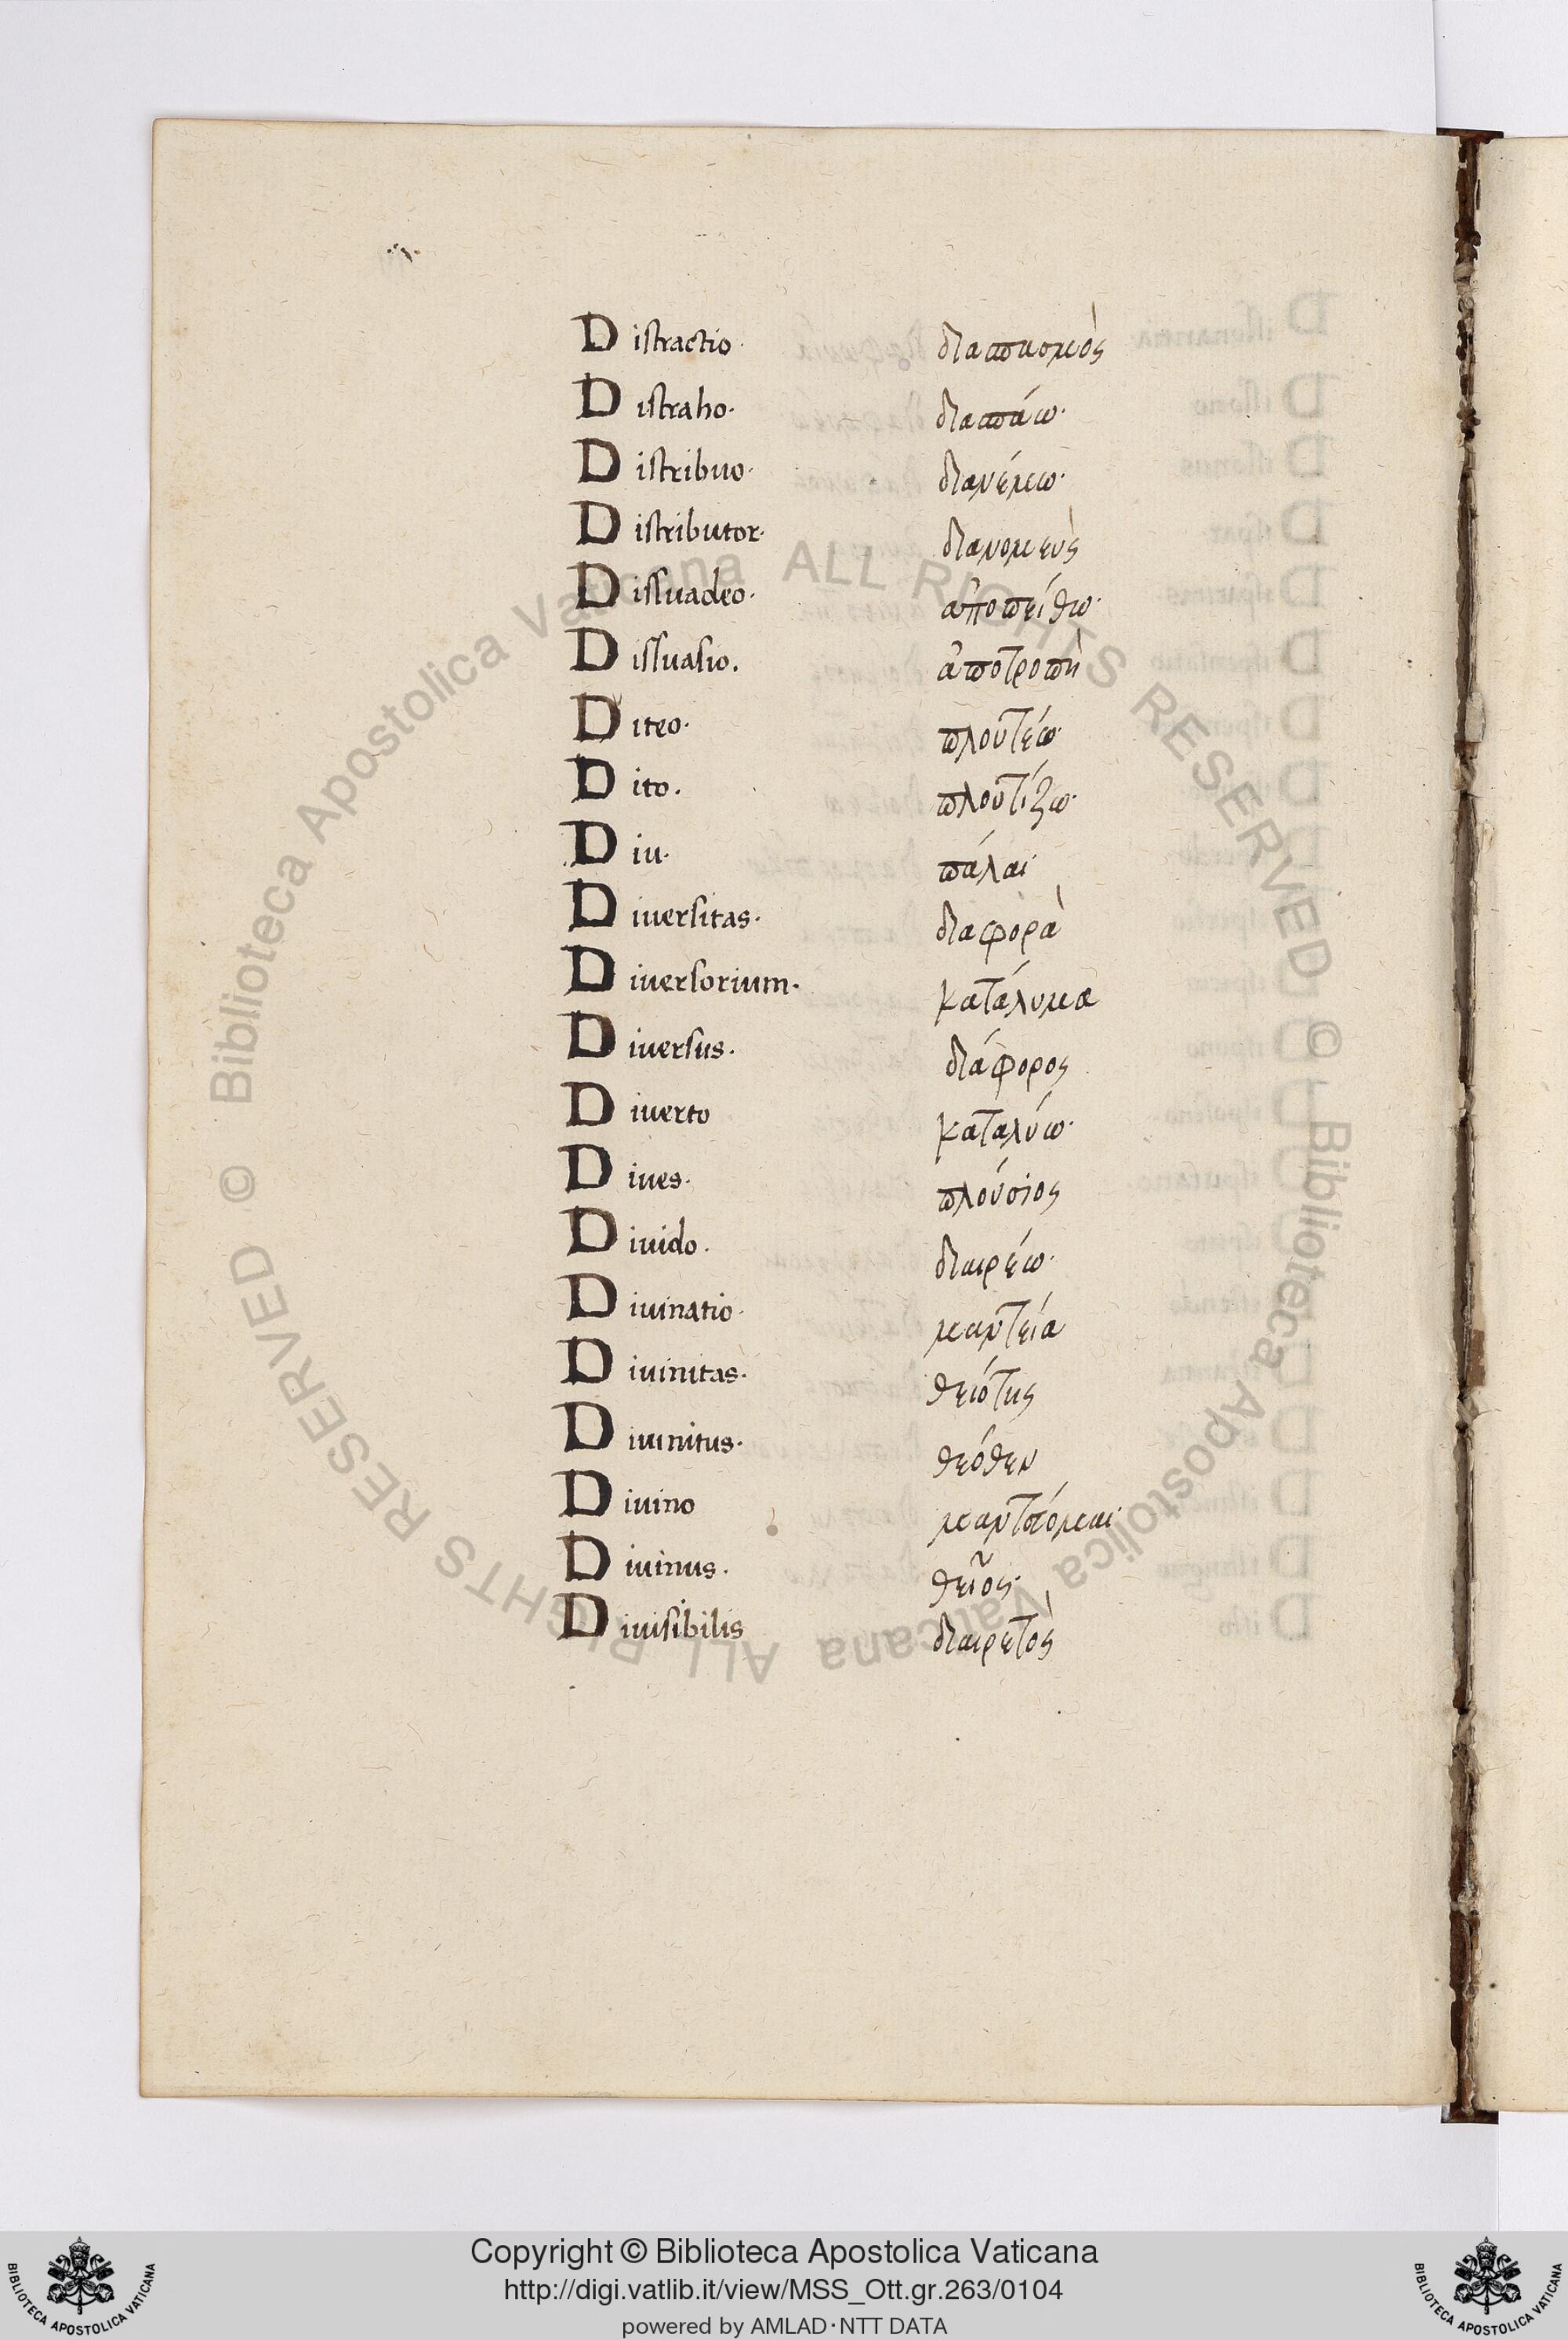 Distractio· διασπασμὸς
Distraho· διασπάω·
Distribuo· διανέμω·
Distributor· διανομεὺς
Dissuadeo· ἀποπείθω·
Dissuasio. ἀποτροπὴ
Diteo· πλουτέω·
Dito. πλουτίζω·
Diu· πάλαι
Diuersitas· διαφορὰ
Diuersorium· κατάλυμα
Diuersus. διάφορος
Diuerto καταλύω·
Diues· πλούσιος
Diuido. διαιρέω·
Diuinatio· μαντεία
Diuinitas· θειότης
Diuinitus· θεόθεν
Diuino μαντεύομαι
Diuinus. θεῖος·
Diuisibilis διαιρετὸς
© Biblioteca Apostolica Vaticana ALL RIGHTS RESERVED
© Biblioteca Apostolica Vaticana ALL RIGHTS RESERVED
Copyright © Biblioteca Apostolica Vaticana
http://digi.vatlib.it/view/MSS_Ott.gr.263/0104
powered by AMLAD·NTT DATA
BIBLIOTECA APOSTOLICA VATICANA
BIBLIOTECA APOSTOLICA VATICANA